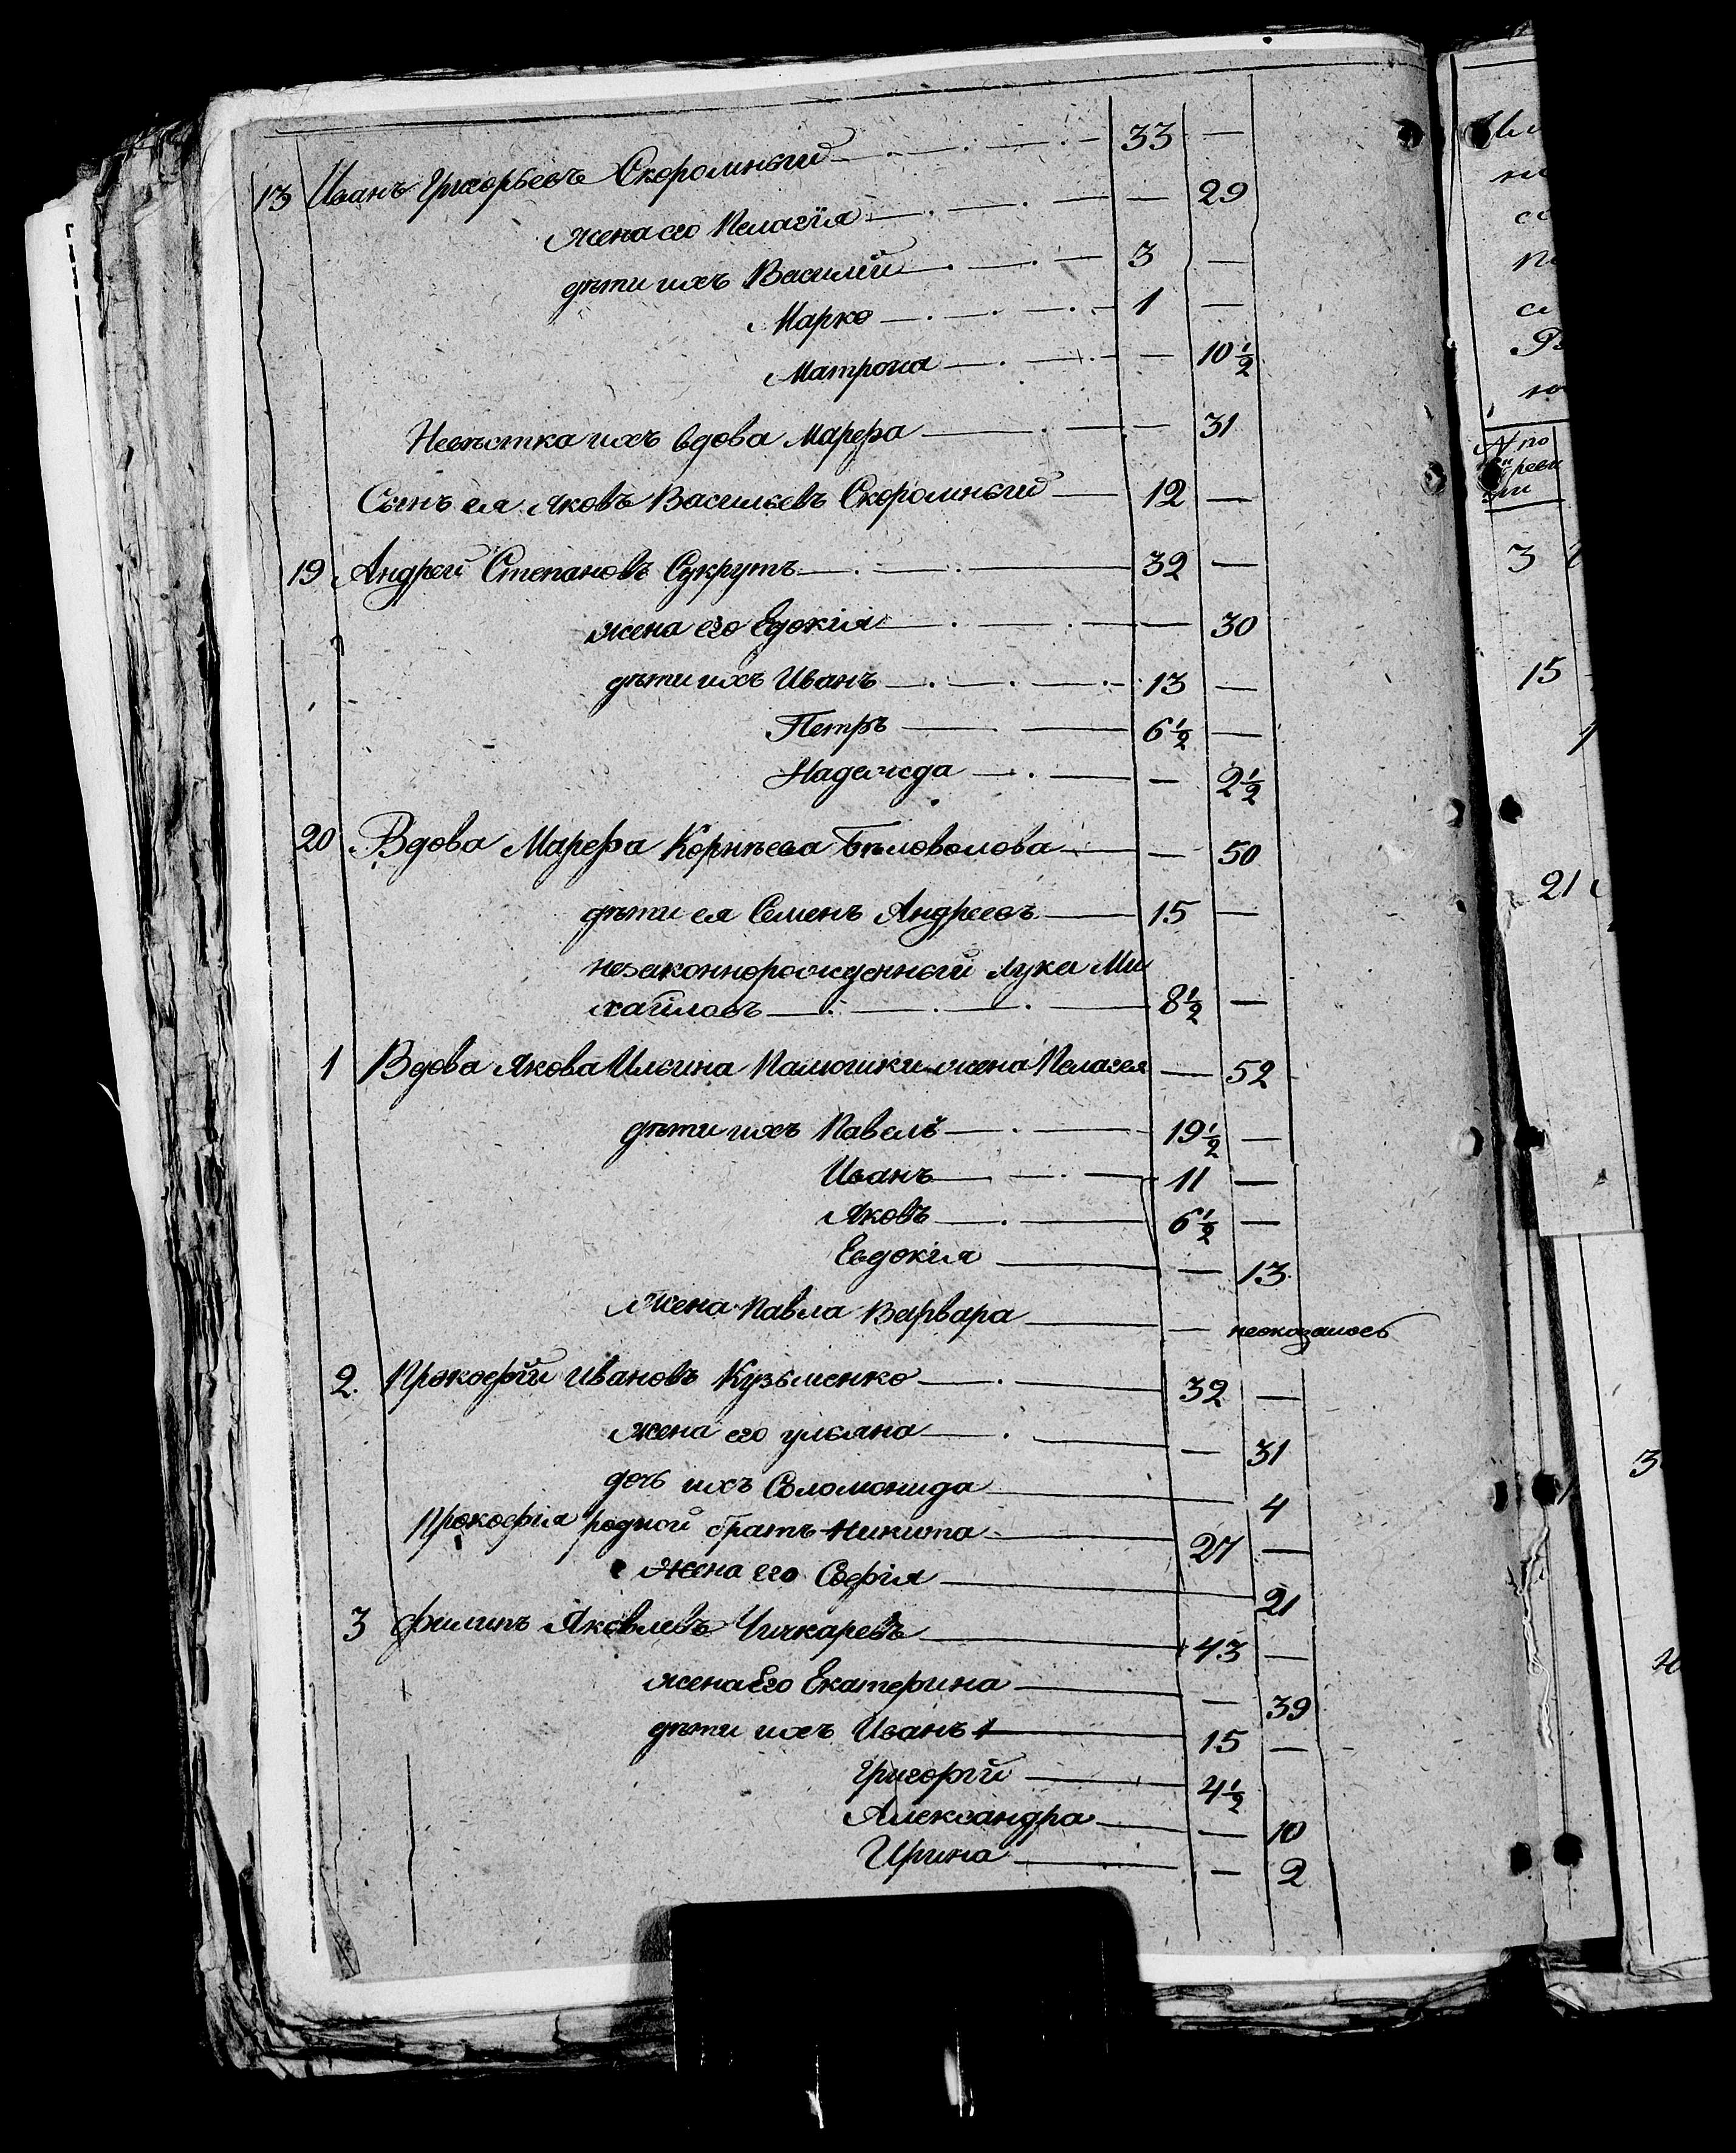 13 Иванъ Григорьевъ Скоромный — 33 —
жена его Пелагія — — 29
дѣти ихъ Василій — 3 —
Марко — 1 —
Матрона — — 10 1/2
Невѣстка ихъ вдова Марѳа — — 31
Сынъ ея Яковъ Васильевъ Скоромный — 12 —
19 Андрей Степановъ Сукрутъ — 32 —
жена его Едокія — — 30
дѣти ихъ Иванъ — 13 —
Петръ — 6 1/2 —
Надежда — — 2 1/2
20 Вдова Марѳа Корнѣева Бѣловолова — — 50
дѣти ея Семенъ Андреевъ — 15 —
незаконнорожденный Лука Ми
хайловъ — 8 1/2 —
1 Вдова Якова Ильина Палюшки жена Пелагея — 52
дѣти ихъ Павелъ — 19 1/2 —
Иванъ — 11 —
Яковъ — 6 1/2 —
Евдокия — — 13
Жена Павла Варвара — — неоказалось
2. Прокофій Ивановъ Кузьменко — 32 —
жена его Ульяна — — 31
дочь ихъ Соломонида — 4
Прокофія родной братъ Никита — 27 —
жена его Софія — 21
3 Филипъ Яковлевъ Чичкаревъ — 43 —
жена Его Екатерина — — 39
дѣти ихъ Иванъ — 15 —
Григорій — 4 1/2
Александра — — 10
Ирина — — 2
№ по
реви
зіи
3
15
21